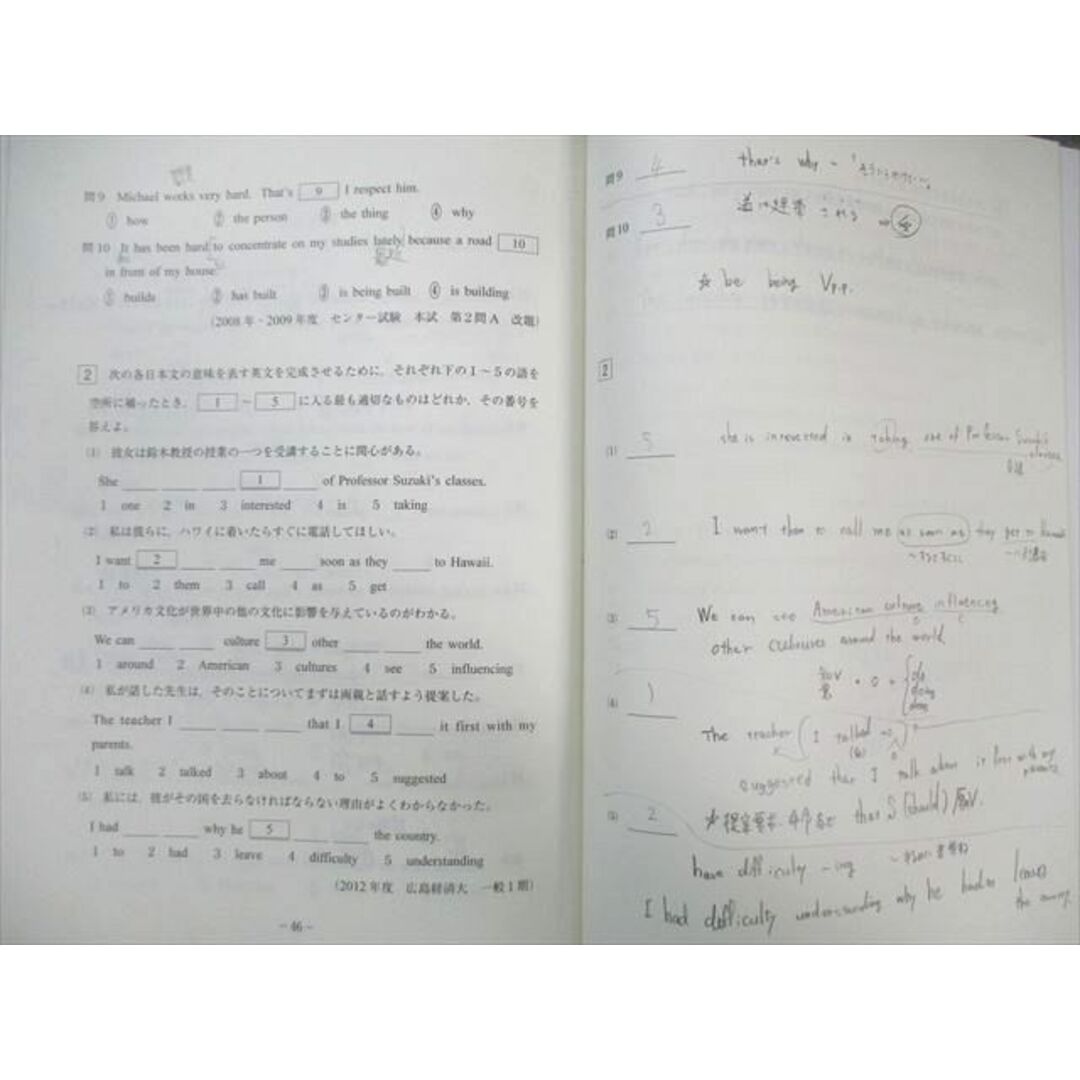 問9 Michael works very hard. That's 9 I respect him.
① how ② the person ③ the thing ④ why
問10 It has been hard to concentrate on my studies lately because a road 10
in front of my house.
① builds ② has built ③ is being built ④ is building
(2008年・2009年度 センター試験 本試 第2問A 改題)
2 次の各日本文の意味を表す英文を完成させるために、それぞれ下の1～5の語を
空所に補ったとき、 1 ～ 5 に入る最も適切なものはどれか、その番号を
答えよ。
(1) 彼女は鈴木教授の授業の一つを受講することに関心がある。
She ___ ___ ___ 1 ___ of Professor Suzuki's classes.
1 one 2 in 3 interested 4 is 5 taking
(2) 私は彼らに、ハワイに着いたらすぐに電話してほしい。
I want 2 ___ ___ me ___ soon as they ___ to Hawaii.
1 to 2 them 3 call 4 as 5 get
(3) アメリカ文化が世界中の他の文化に影響を与えているのがわかる。
We can ___ ___ culture 3 other ___ ___ the world.
1 around 2 American 3 cultures 4 see 5 influencing
(4) 私が話した先生は、そのことについてまずは両親と話すよう提案した。
The teacher I ___ ___ ___ that I 4 ___ it first with my
parents.
1 talk 2 talked 3 about 4 to 5 suggested
(5) 私には、彼がその国を去らなければならない理由がよくわからなかった。
I had ___ ___ why he 5 ___ ___ the country.
1 to 2 had 3 leave 4 difficulty 5 understanding
(2012年度 広島経済大 一般1期)
-46-
問9 4 that's why ~
問10 3 道は建設される
☆ be being Vp.p.
2
(1) 5 she is interested in taking one of Professor Suzuki's
classes
(2) 2 I want them to call me as soon as they get to Hawaii
~するとすぐに
(3) 5 We can see American culture influencing
other cultures around the world.
(4) 1
The teacher (I talked to)
suggested that I talk about it first with my
parents
(5) 2 that S (should) 原V.
have difficulty -ing
I had difficulty understanding why he had to leave
the country.